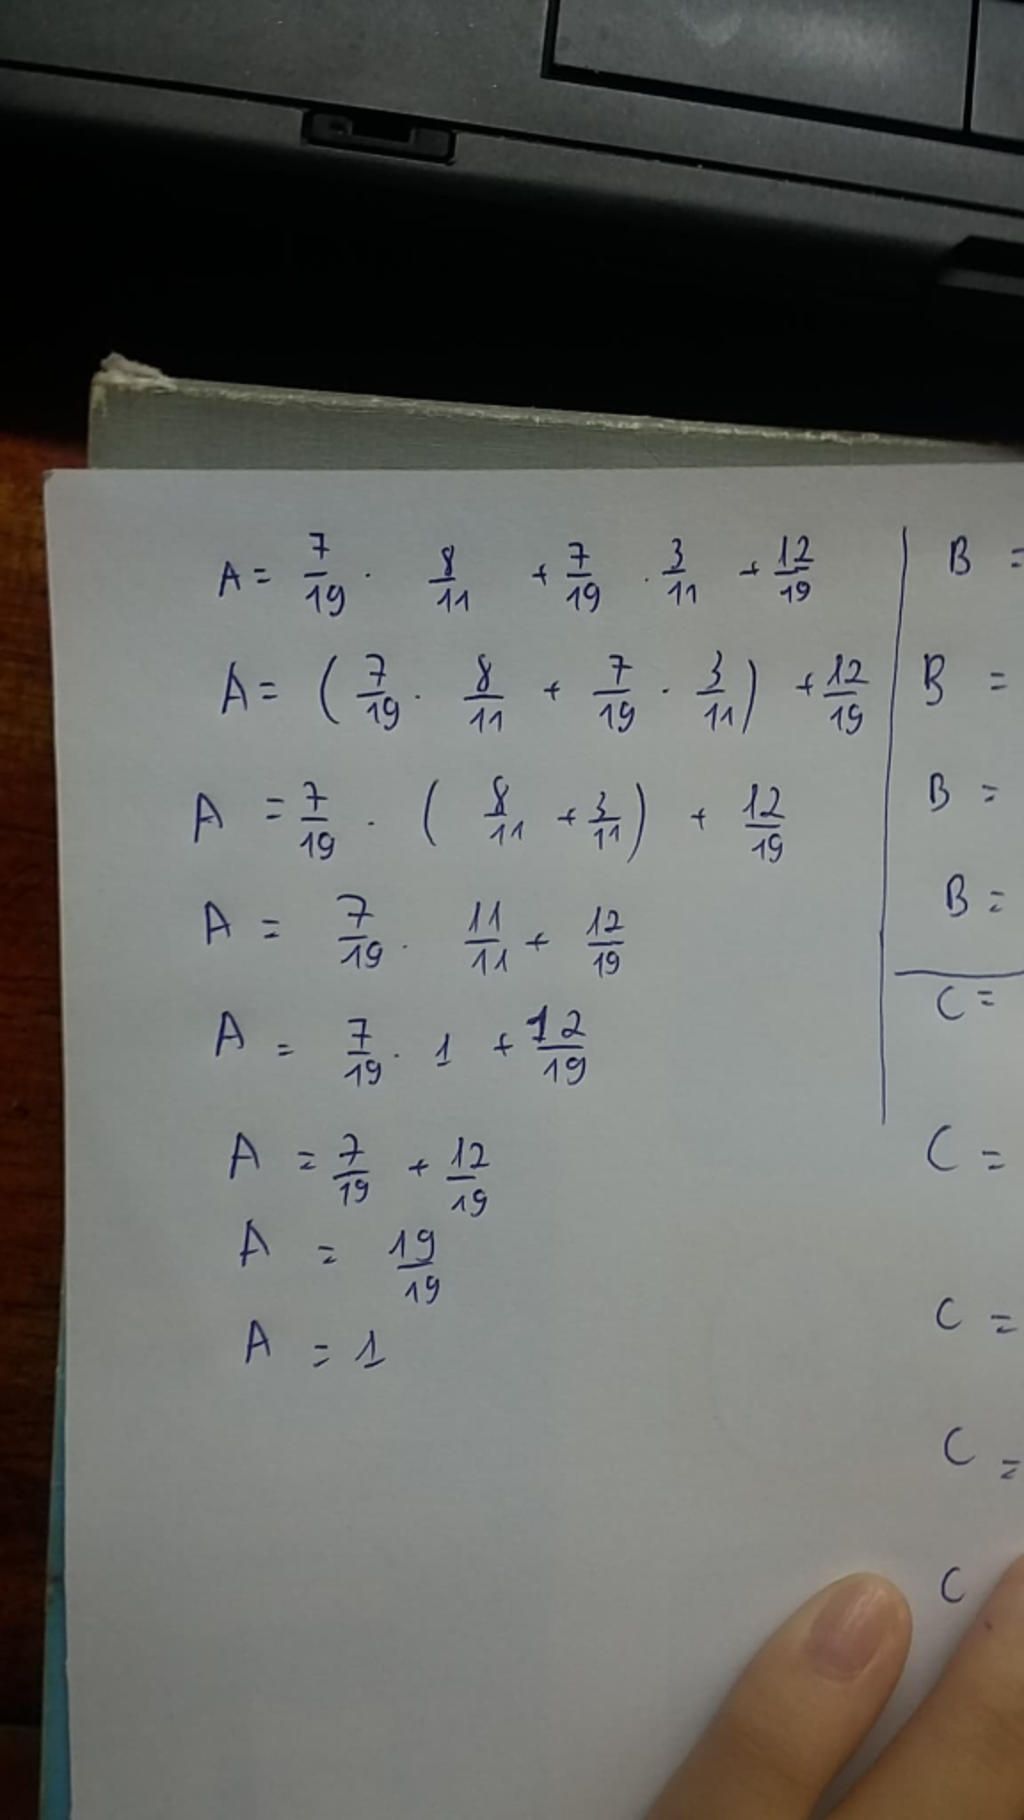 A = 7/19 . 8/11 + 7/19 . 3/11 + 12/19
A = (7/19 . 8/11 + 7/19 . 3/11) + 12/19
A = 7/19 . (8/11 + 3/11) + 12/19
A = 7/19 . 11/11 + 12/19
A = 7/19 . 1 + 12/19
A = 7/19 + 12/19
A = 19/19
A = 1
B =
B =
B =
B =
C =
C =
C =
C =
C